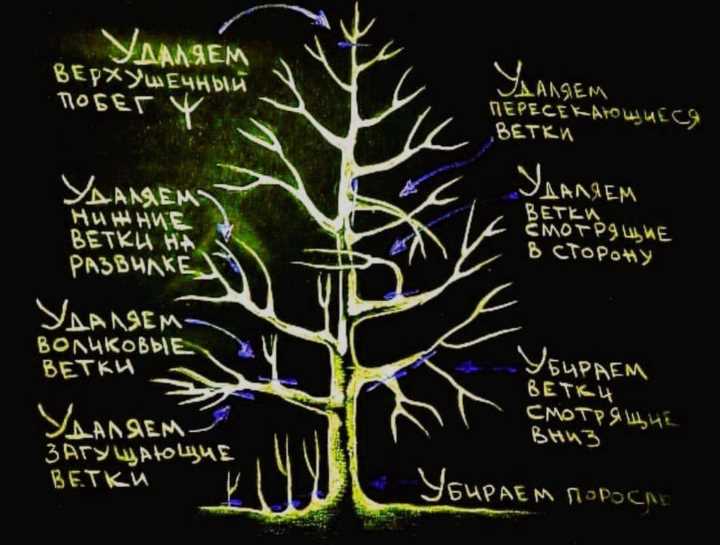 Удаляем
верхушечный
побег
Удаляем
пересекающиеся
ветки
Удаляем
нижние
ветки на
развилке
Удаляем
ветки
смотрящие
в сторону
Удаляем
волчковые
ветки
Убираем
ветки
смотрящие
вниз
Удаляем
загущающие
ветки
Убираем поросль